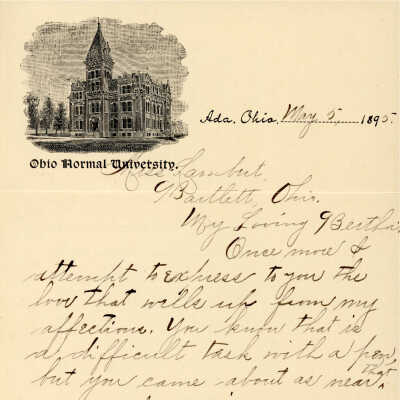 Ohio Normal University.
Ada, Ohio, May 5, 1895.
Miss Lambert,
Bartlett, Ohio.
My Loving Bertha:
Once more I
attempt to express to you the
love that wells up from my
affections. You know that is
a difficult task with a pen,
but you came about as near that